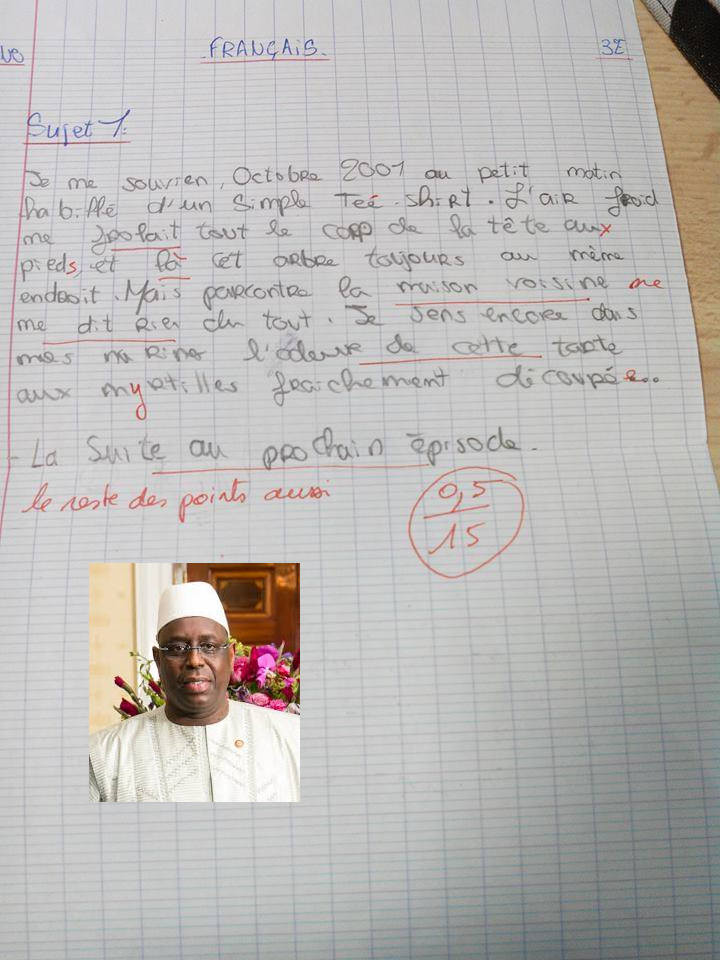 FRANÇAIS.
3E
Sujet 1:
Je me souvien, Octobre 2001 au petit matin
habillé d'un simple Teé-shirt. L'air froid
me jonfait tout le corp de la tête aux
pieds, et là cet arbre toujours au même
endroit. Mais parcontre la maison voisine ne
me dit rien du tout. Je sens encore dans
mes narines l'odeure de cette tarte
aux myrtilles fraichement découpée...
- La Suite au prochain épisode.
le reste des points aussi
0,5
15